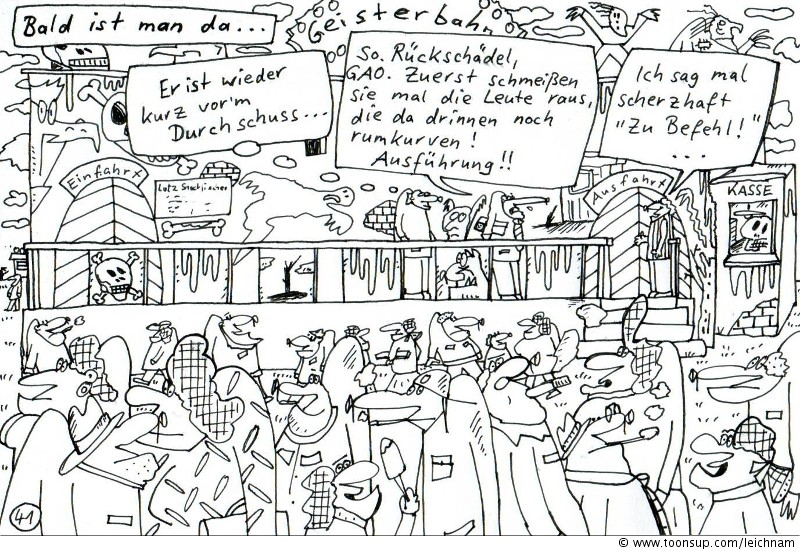 Bald ist man da...
Geisterbahn
Er ist wieder
kurz vor'm
Durchschuss...
So. Rückschädel,
GAO. Zuerst schmeißen
sie mal die Leute raus,
die da drinnen noch
rumkurven!
Ausführung!!
Ich sag mal
scherzhaft
"Zu Befehl!"
...
Einfahrt
Lutz
Ausfahrt
KASSE
41
© www.toonsup.com/leichnam